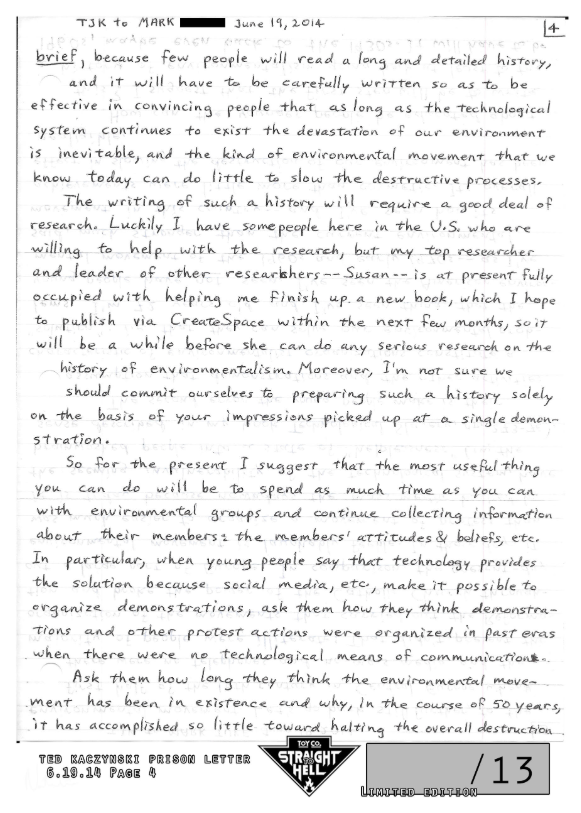 TJK to MARK June 19, 2014
4
brief, because few people will read a long and detailed history,
and it will have to be carefully written so as to be
effective in convincing people that as long as the technological
system continues to exist the devastation of our environment
is inevitable, and the kind of environmental movement that we
know today can do little to slow the destructive processes.
The writing of such a history will require a good deal of
research. Luckily I have some people here in the U.S. who are
willing to help with the research, but my top researcher
and leader of other researchers -- Susan -- is at present fully
occupied with helping me finish up a new book, which I hope
to publish via CreateSpace within the next few months, so it
will be a while before she can do any serious research on the
history of environmentalism. Moreover, I'm not sure we
should commit ourselves to preparing such a history solely
on the basis of your impressions picked up at a single demon-
stration.
So for the present I suggest that the most useful thing
you can do will be to spend as much time as you can
with environmental groups and continue collecting information
about their members: the members' attitudes & beliefs, etc.
In particular, when young people say that technology provides
the solution because social media, etc., make it possible to
organize demonstrations, ask them how they think demonstra-
tions and other protest actions were organized in past eras
when there were no technological means of communication.
Ask them how long they think the environmental move-
ment has been in existence and why, in the course of 50 years,
it has accomplished so little toward halting the overall destruction
TED KACZYNSKI PRISON LETTER
6.19.14 PAGE 4
TOY CO.
STRAIGHT
TO
HELL
/13
LIMITED EDITION